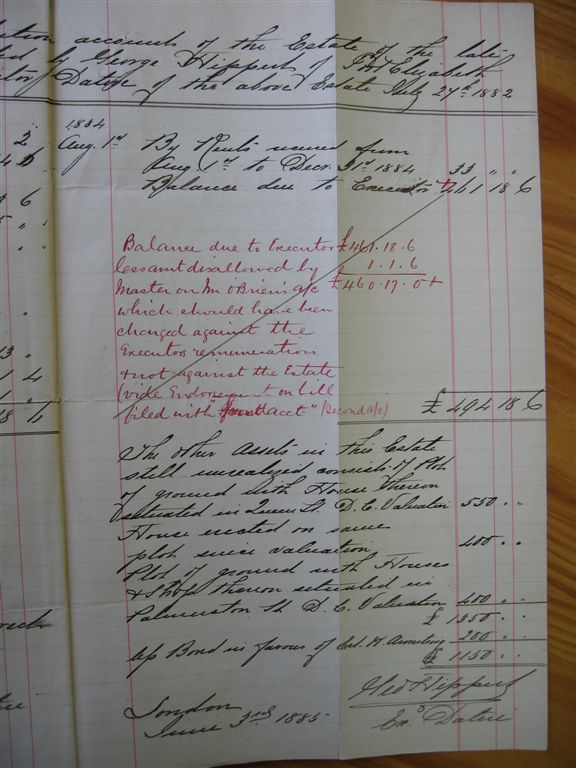 ution accounts of the Estate of the late
ed by George Hippert of Port Elizabeth
utor Dative of the above Estate July 27th 1882
1884
2 Augt. 1st By Rents received from
Aug. 1st to Decr. 31st 1884 33 " "
Balance due to Executor £461 18 6
6
Balance due to Executor £461.18.6
less amt disallowed by 1.1.6
Master on Mr OBrien's a/c £460.17.0
which should have been
charged against the
Executors remuneration
& not against the Estate
(vide Endorsement on bill
filed with acct" (Second a/c)
13 "
1 4
1 "
18 6 £ 494 18 6
The other Assets in this Estate
still unrealized consists of Plot
of ground with House thereon
situated in Queen St. D. C. Valuation 550 " "
House erected on same
plot since valuation 400 " "
Plot of ground with Houses
& Shop thereon situated in
Palmerston St D. C. Valuation 400 " "
£ 1350 " "
Bond in favour of H. Armstrong 200 " "
£ 1150 " "
Geo Hippert
London
June 3rd 1885
Exor Dative